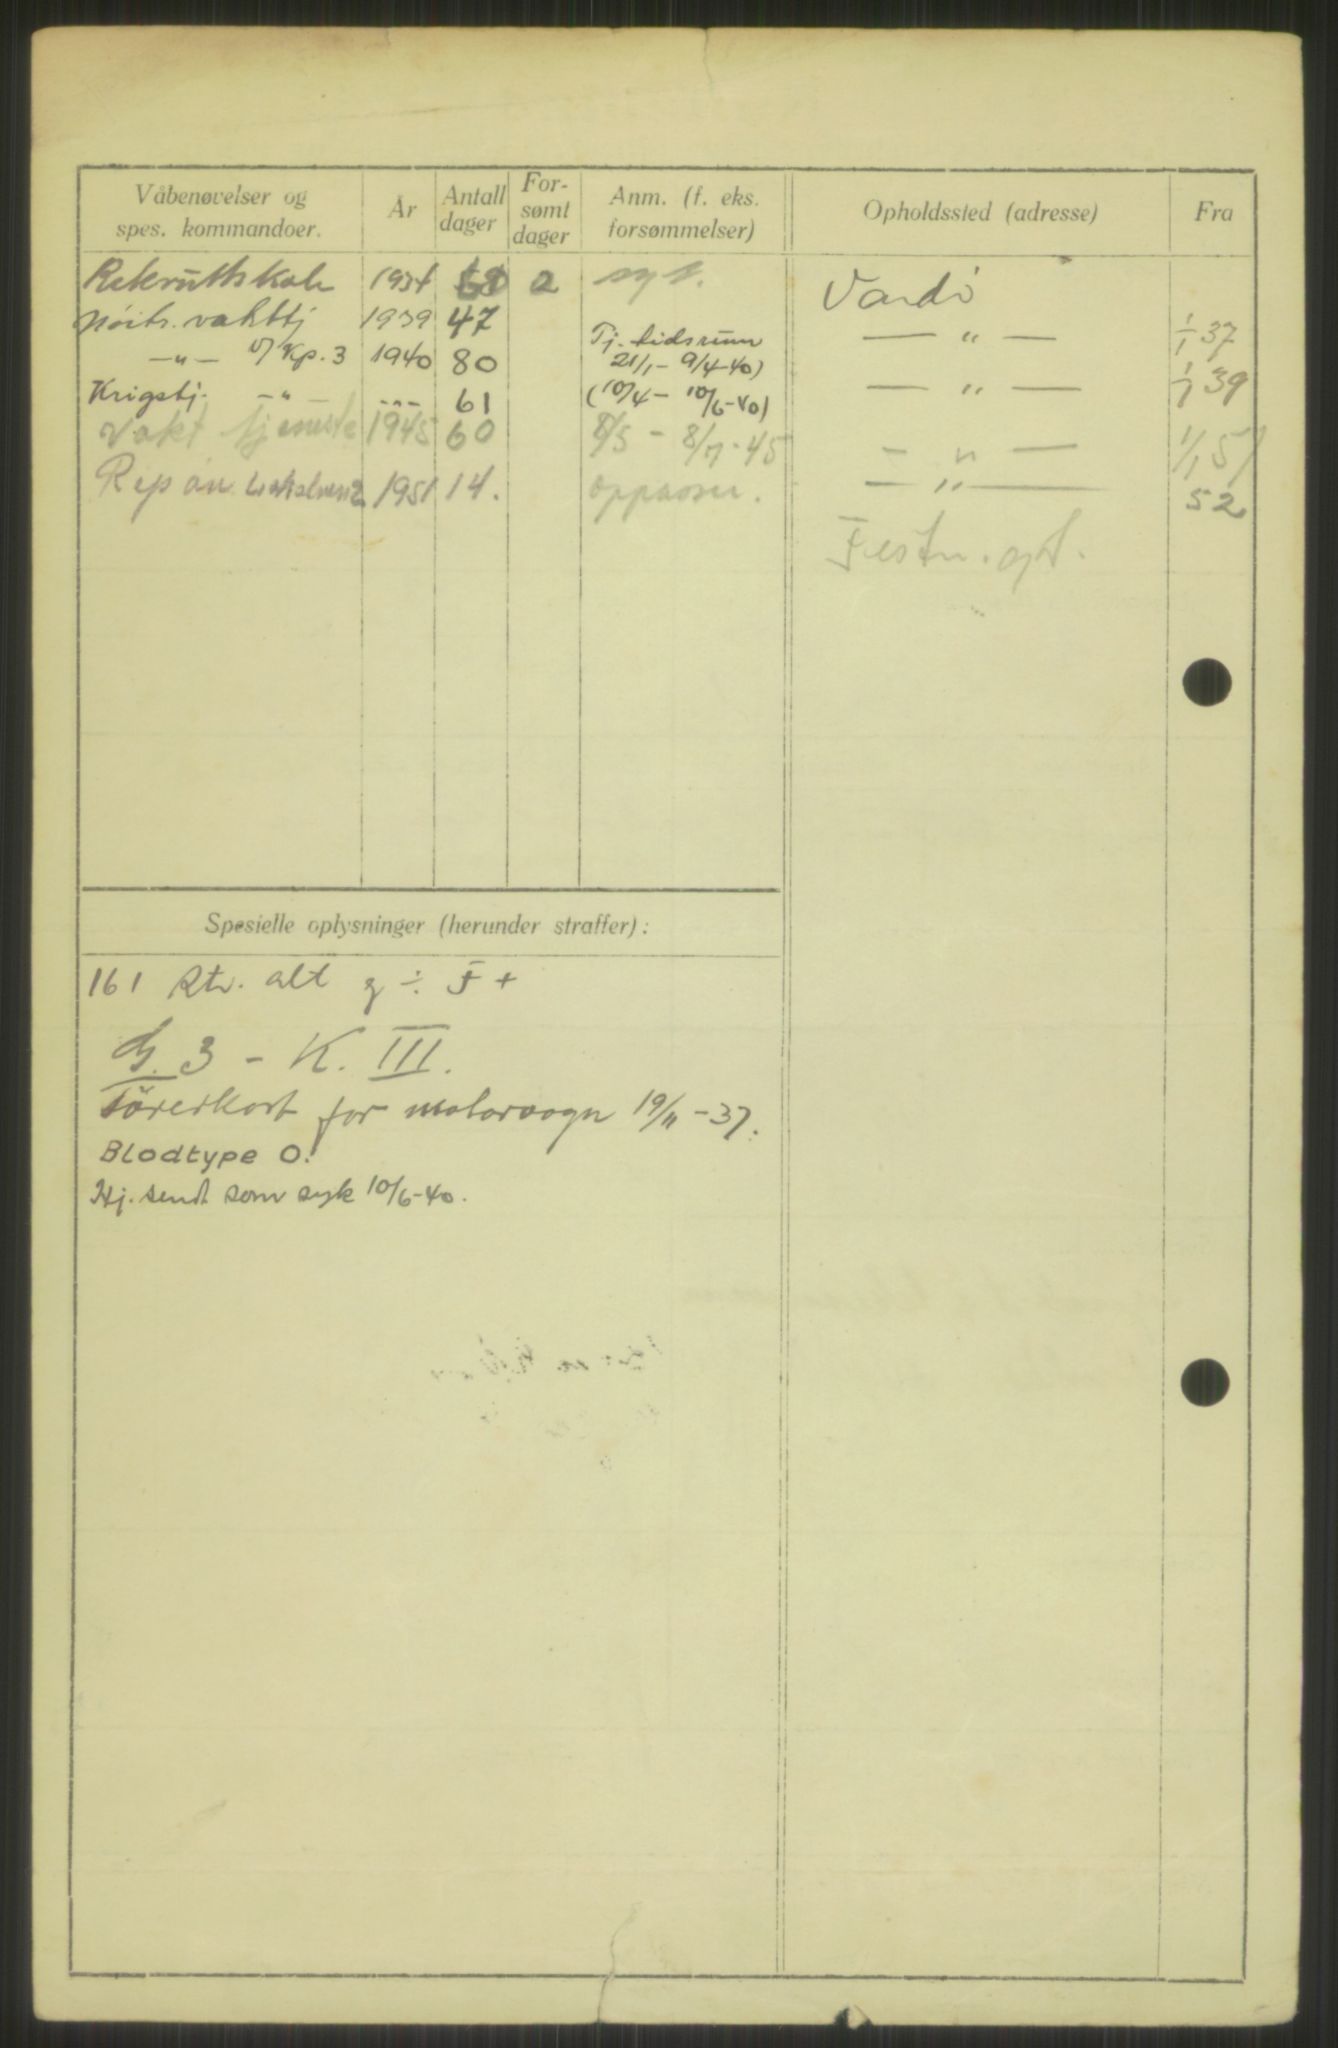 Våbenøvelser og spes. kommandoer. | År | Antall dager | For-sømt dager | Anm. (f. eks. forsømmelser) | Opholdssted (adresse) | Fra
Rekruttskole 1934 2 syk. Vardö
Nöitr. vakttj 1939 47 — " — 1/1 37
— " — v/ Kp. 3 1940 80 Tj. tidsrum 21/1 - 9/4-40)
Krigstj. — " — - " - 61 (10/4 - 10/6-40) — " — 1/1 39
Vakt tjeneste 1945 60 8/5 - 8/7-45 — " — 1/1 51
Rep øv. Lokalvern 1951 14. oppasser. — " — 52
Festn. opt.
Spesielle oplysninger (herunder straffer):
161 Rtv. alt g ÷ F +
G. 3 - K. III.
Förerkort for motorvogn 19/11 -37.
Blodtype O.
Hj. sendt som syk 10/6-40.